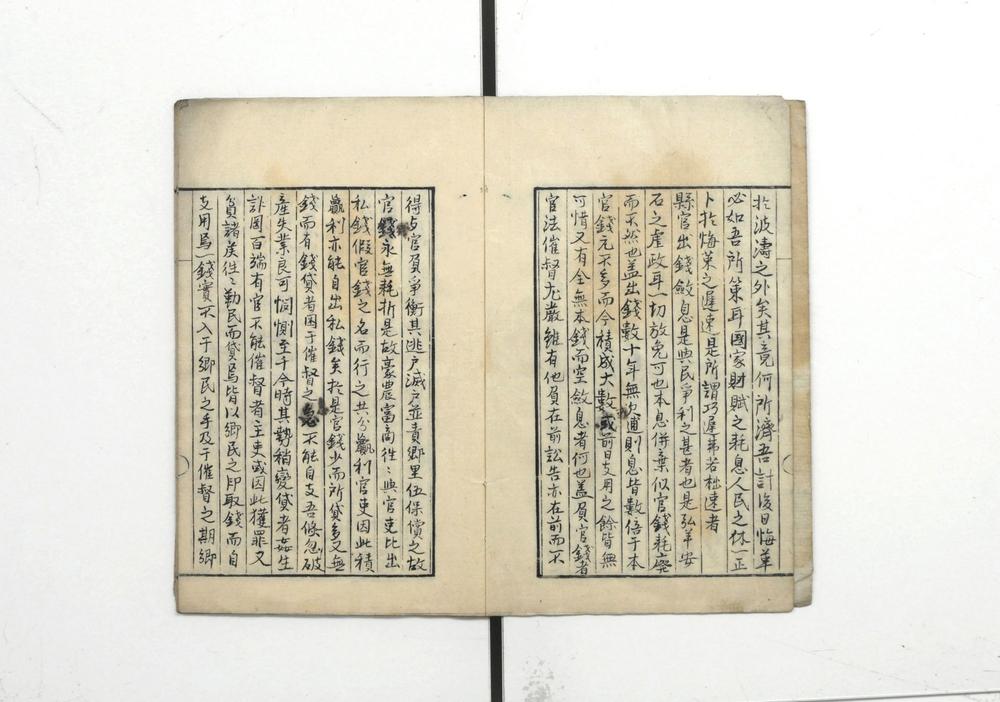 於波濤之外矣其竟何所濟吾計後日悔革
必如吾所策耳國家財賦之耗息人民之休一正
卜於悔策之遲速是所謂巧遲弗若拙速者
縣官出錢斂息是與民爭利之甚者也是弘羊安
石之虐政耳一切放免可也本息併棄似官錢耗廢
而不然也蓋出錢數十年無欠逋則息皆數倍于本
官錢元不多而今積成大數或前日支用之餘皆無
可惜又有全無本錢而空斂息者何也蓋負官錢者
官法催督尤嚴雖有他負在前訟告亦在前而不
得与官負爭衡其逃戶滅戶並責鄉里伍保償之故
官錢永無耗折是故豪農富商往〻與官吏比出
私錢假官錢之名而行之共分贏利官吏因此積
贏利亦能自出私錢矣於是官錢少而所貸多又無
錢而有錢貸者困于催督之急不能自支吾倏忽破
產失業良可憫惻至于今時其勢稍變貸者姦生
詐圖百端有官不能催督者主吏或因此獲罪又
貧諸侯往〻勒民而貸焉皆以鄉民之印取錢而自
支用焉一錢實不入于鄉民之手及于催督之期鄉